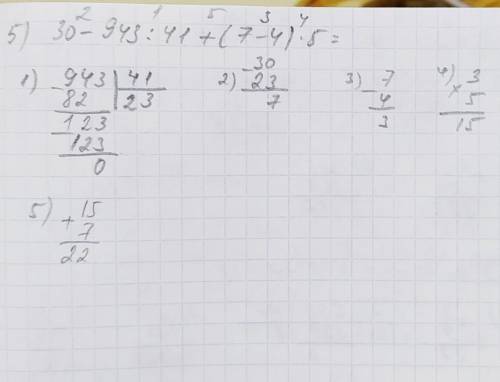 2 1 5 3 4
5) 30 - 943 : 41 + (7 - 4) · 5 =
1) - 943 | 41
82 | 23
- 123
123
0
2) - 30
23
7
3) - 7
4
3
4) × 3
5
15
5) + 15
7
22